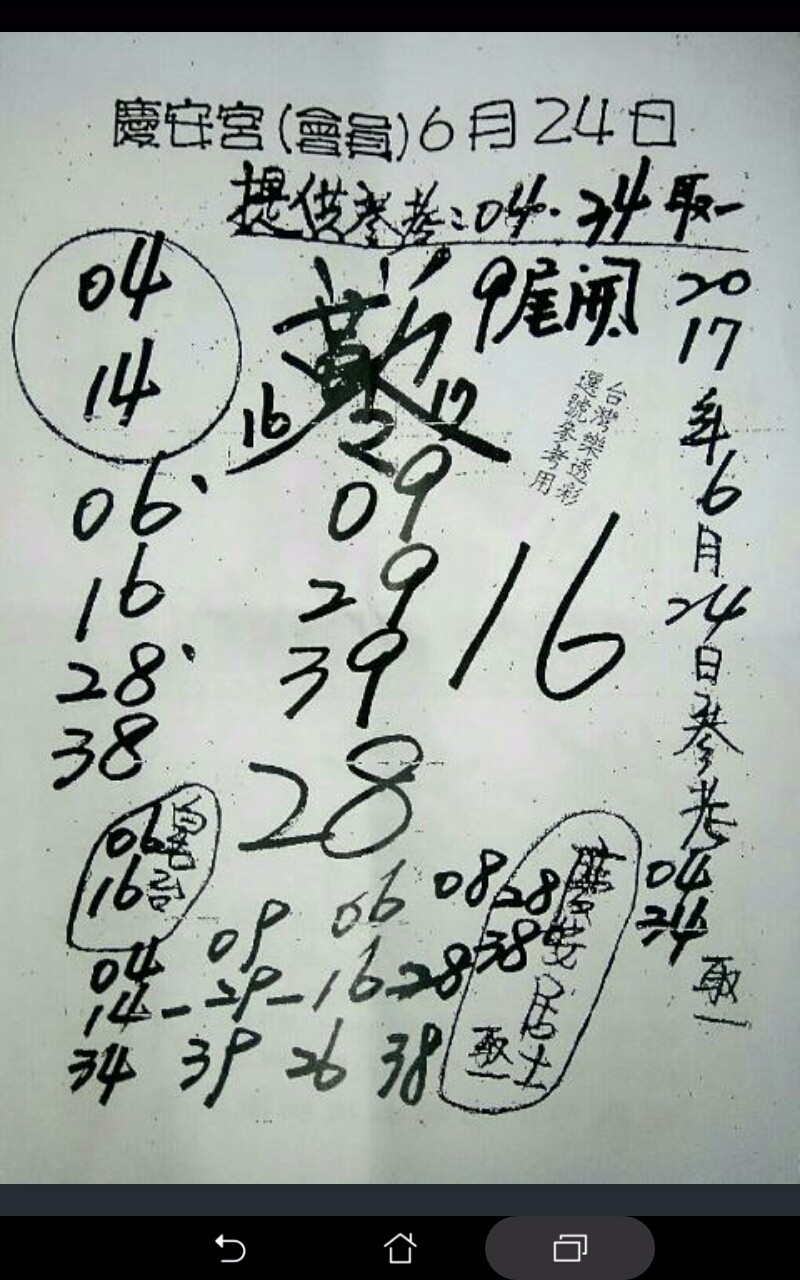 慶安宮(會員)6月24日
提供參考:04.34取一
9尾開
04
14
16
2
17
台灣樂透彩
選號參考用
06
16
28
38
09
29
39
16
28
2017年6月24日參考
04
34
取一
06
16
08 28
38
慶安居士
取一
04 09 06
14-29-16-28
34 39 26 38